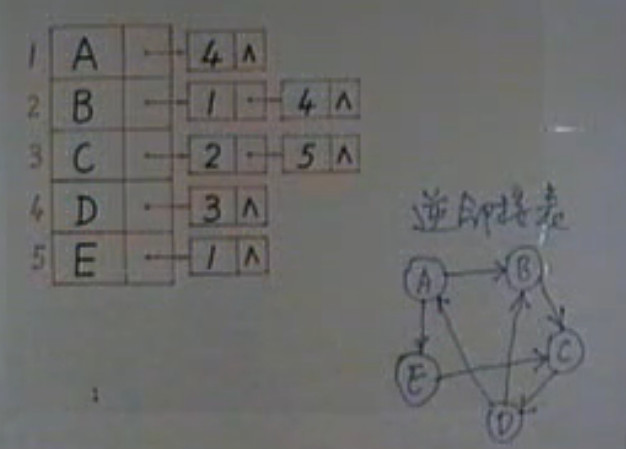 1 A 4 ∧
2 B 1 4 ∧
3 C 2 5 ∧
4 D 3 ∧
5 E 1 ∧
逆邻接表
A B
E C
D